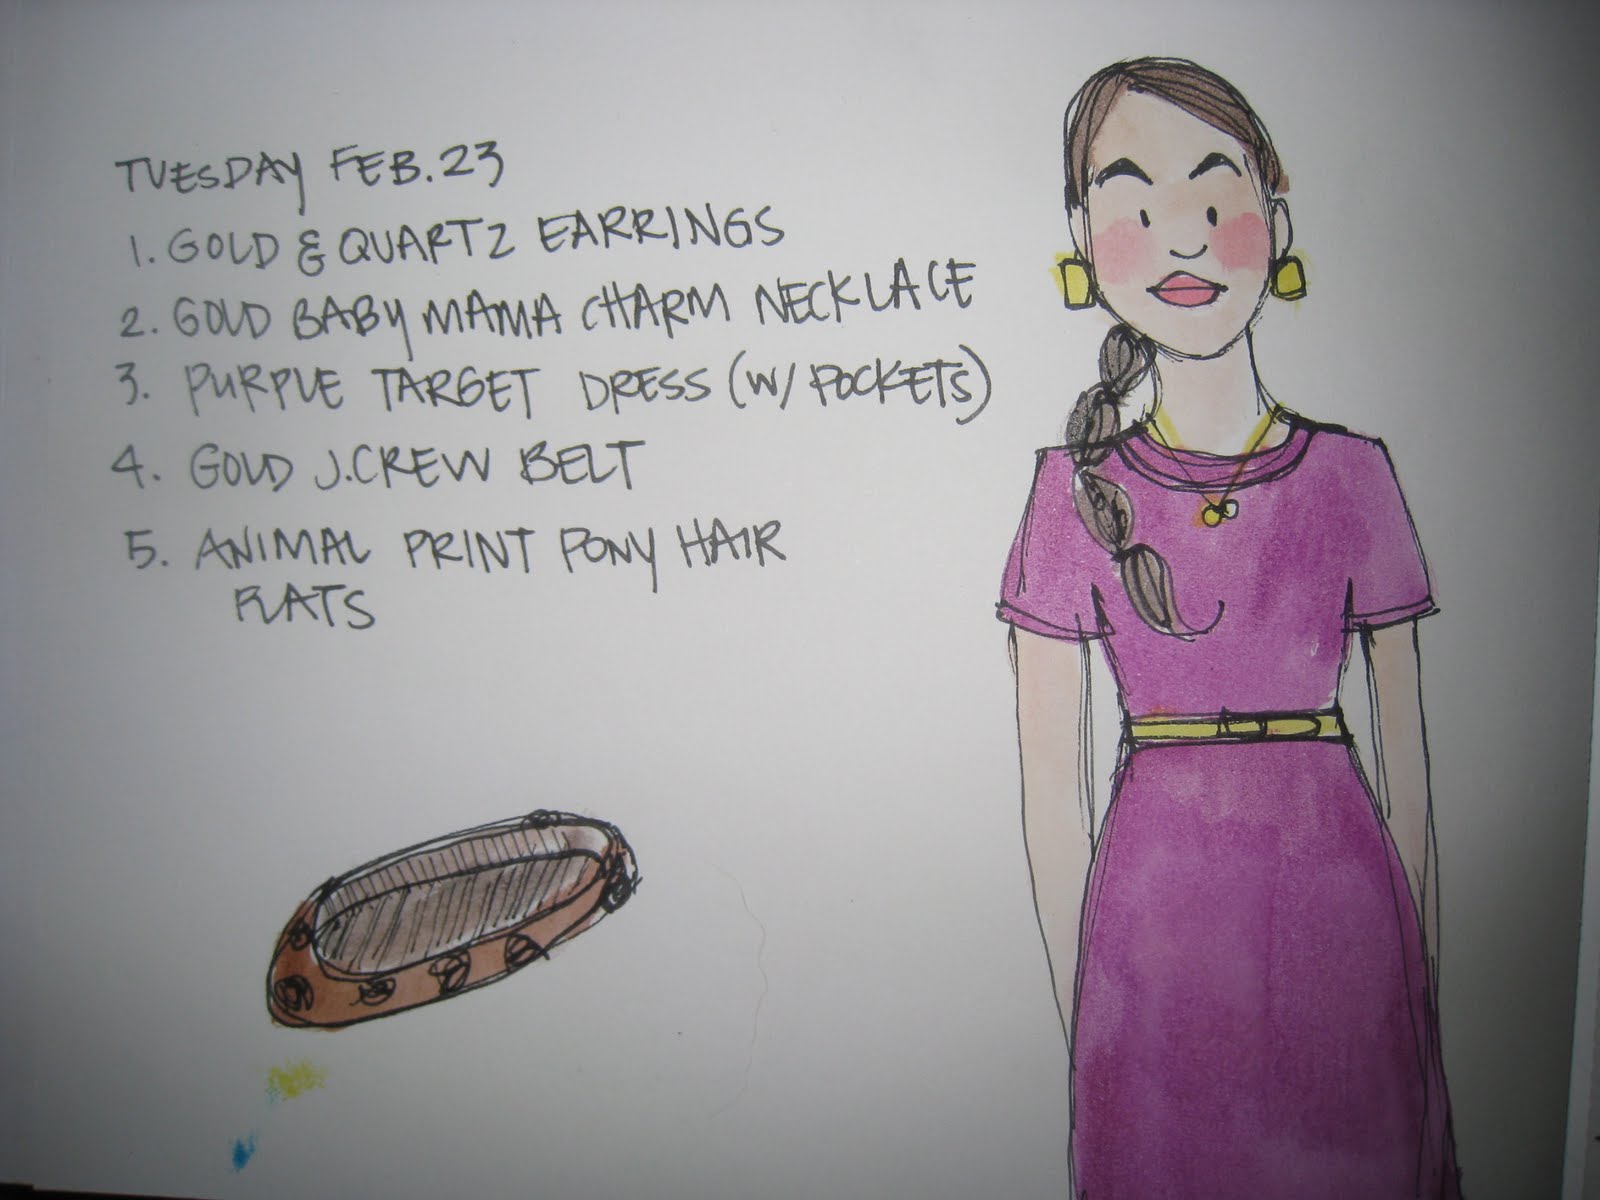 TUESDAY FEB. 23
1. GOLD & QUARTZ EARRINGS
2. GOLD BABY MAMA CHARM NECKLACE
3. PURPLE TARGET DRESS (W/ POCKETS)
4. GOLD J.CREW BELT
5. ANIMAL PRINT PONY HAIR
FLATS